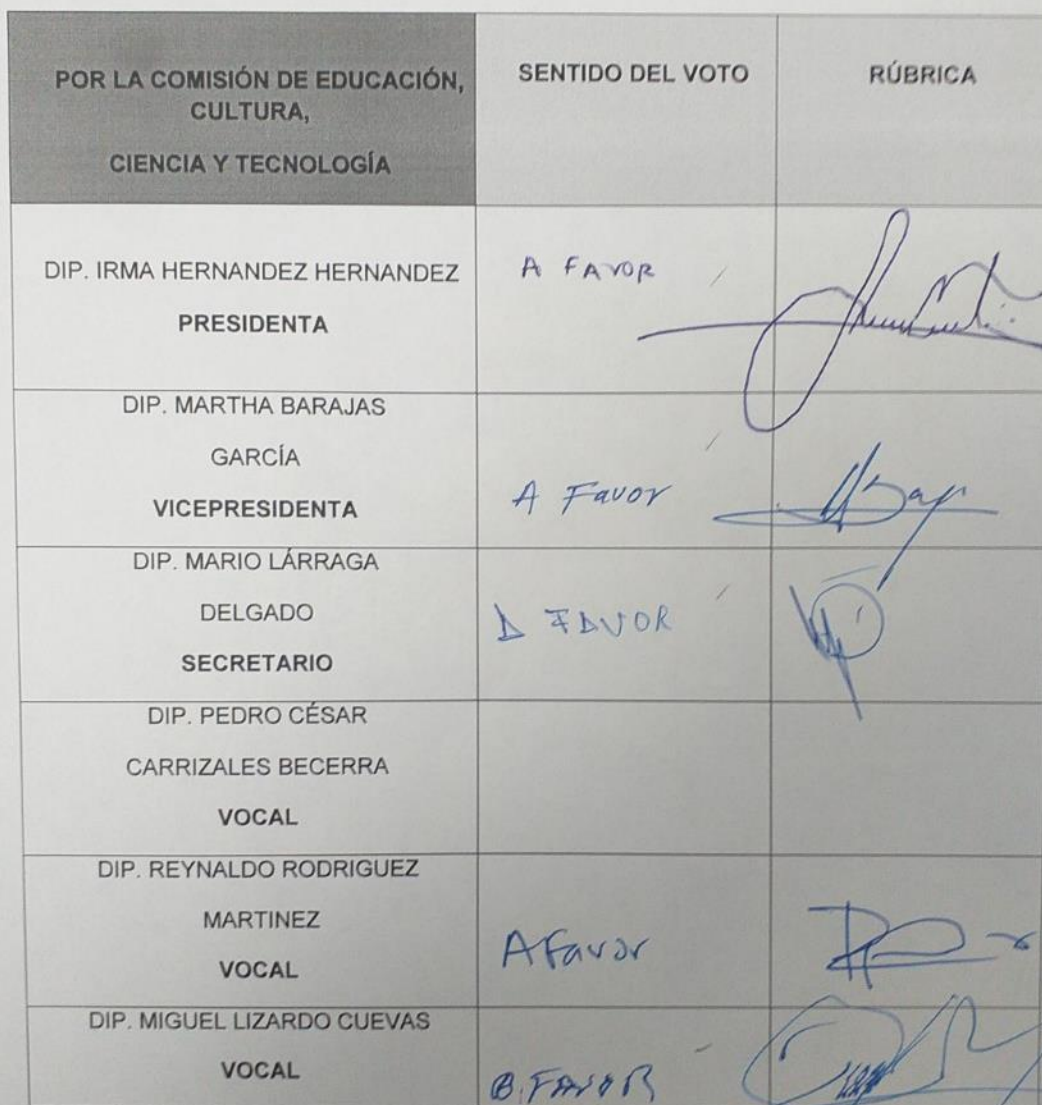 POR LA COMISIÓN DE EDUCACIÓN,
CULTURA,
CIENCIA Y TECNOLOGÍA
SENTIDO DEL VOTO
RÚBRICA
DIP. IRMA HERNANDEZ HERNANDEZ
PRESIDENTA
A FAVOR
DIP. MARTHA BARAJAS
GARCÍA
VICEPRESIDENTA
A Favor
DIP. MARIO LÁRRAGA
DELGADO
SECRETARIO
A FAVOR
DIP. PEDRO CÉSAR
CARRIZALES BECERRA
VOCAL
DIP. REYNALDO RODRIGUEZ
MARTINEZ
VOCAL
A Favor
DIP. MIGUEL LIZARDO CUEVAS
VOCAL
FAVOR